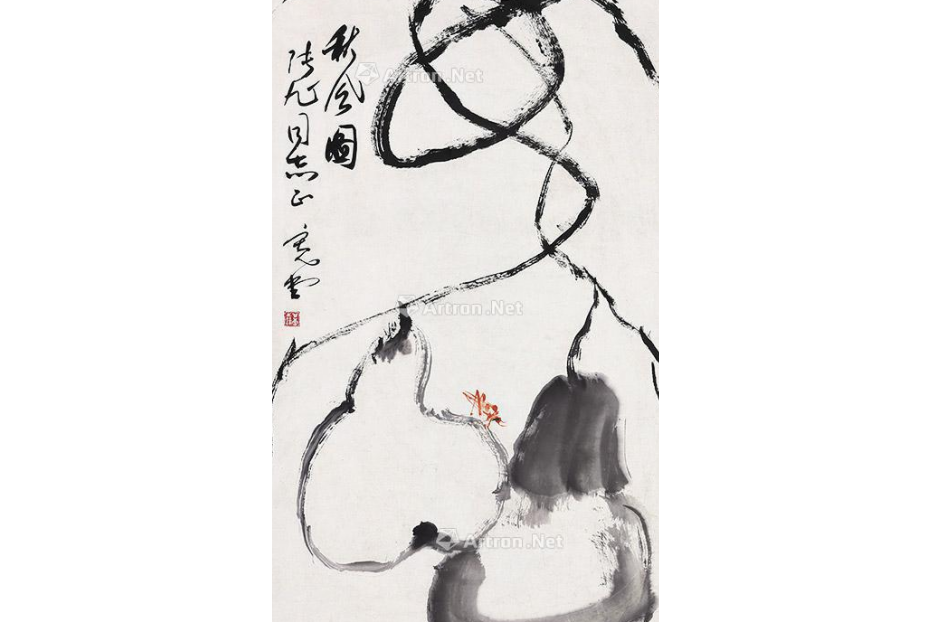 秋风图
张旭同志正
宪堂
Artron.Net
Artron.Net
Artron.Net